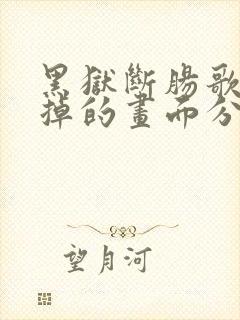 黑獄斷腸歌
掉的畫而分
望月河